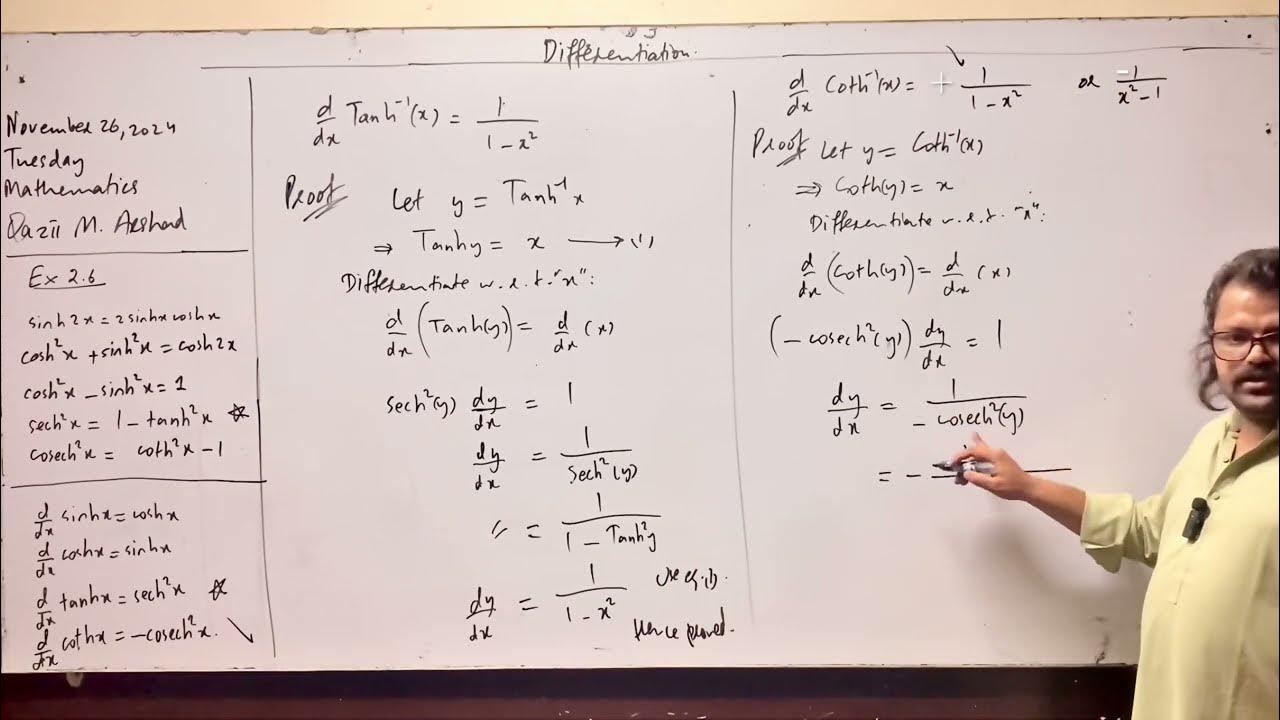 Differentiation.
November 26, 2024
Tuesday
Mathematics
Qazii M. Arshad
Ex 2.6
sinh2x = 2 sinhx coshx
cosh²x + sinh²x = cosh2x
cosh²x - sinh²x = 1
sech²x = 1 - tanh²x
cosech²x = coth²x - 1
d/dx sinhx = coshx
d/dx coshx = sinhx
d/dx tanhx = sech²x
d/dx cothx = -cosech²x.
d/dx Tanh⁻¹(x) = 1/(1 - x²)
Proof Let y = Tanh⁻¹x
⇒ Tanhy = x ⟶ (1)
Differentiate w.r.t. "x":
d/dx (Tanh(y)) = d/dx (x)
Sech²(y) dy/dx = 1
dy/dx = 1/Sech²(y)
〃 = 1/(1 - Tanh²y)
dy/dx = 1/(1 - x²) use eq.(1).
Hence proved.
d/dx Coth⁻¹(x) = + 1/(1 - x²) or -1/(x² - 1)
Proof Let y = Coth⁻¹(x)
⇒ Coth(y) = x
Differentiate w.r.t. "x":
d/dx (Coth(y)) = d/dx (x)
(- cosech²(y)) dy/dx = 1
dy/dx = 1/(- cosech²(y))
= -